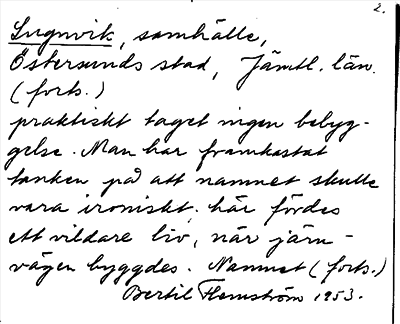 2.
Lugnvik, samhälle,
Östersunds stad, Jämtl. län.
(forts.)
praktiskt taget ingen bebyg-
gelse. Man har framkastat
tanken på att namnet skulle
vara ironiskt: här fördes
ett vildare liv, när järn-
vägen byggdes. Namnet (forts.)
Bertil Flemström 1953.